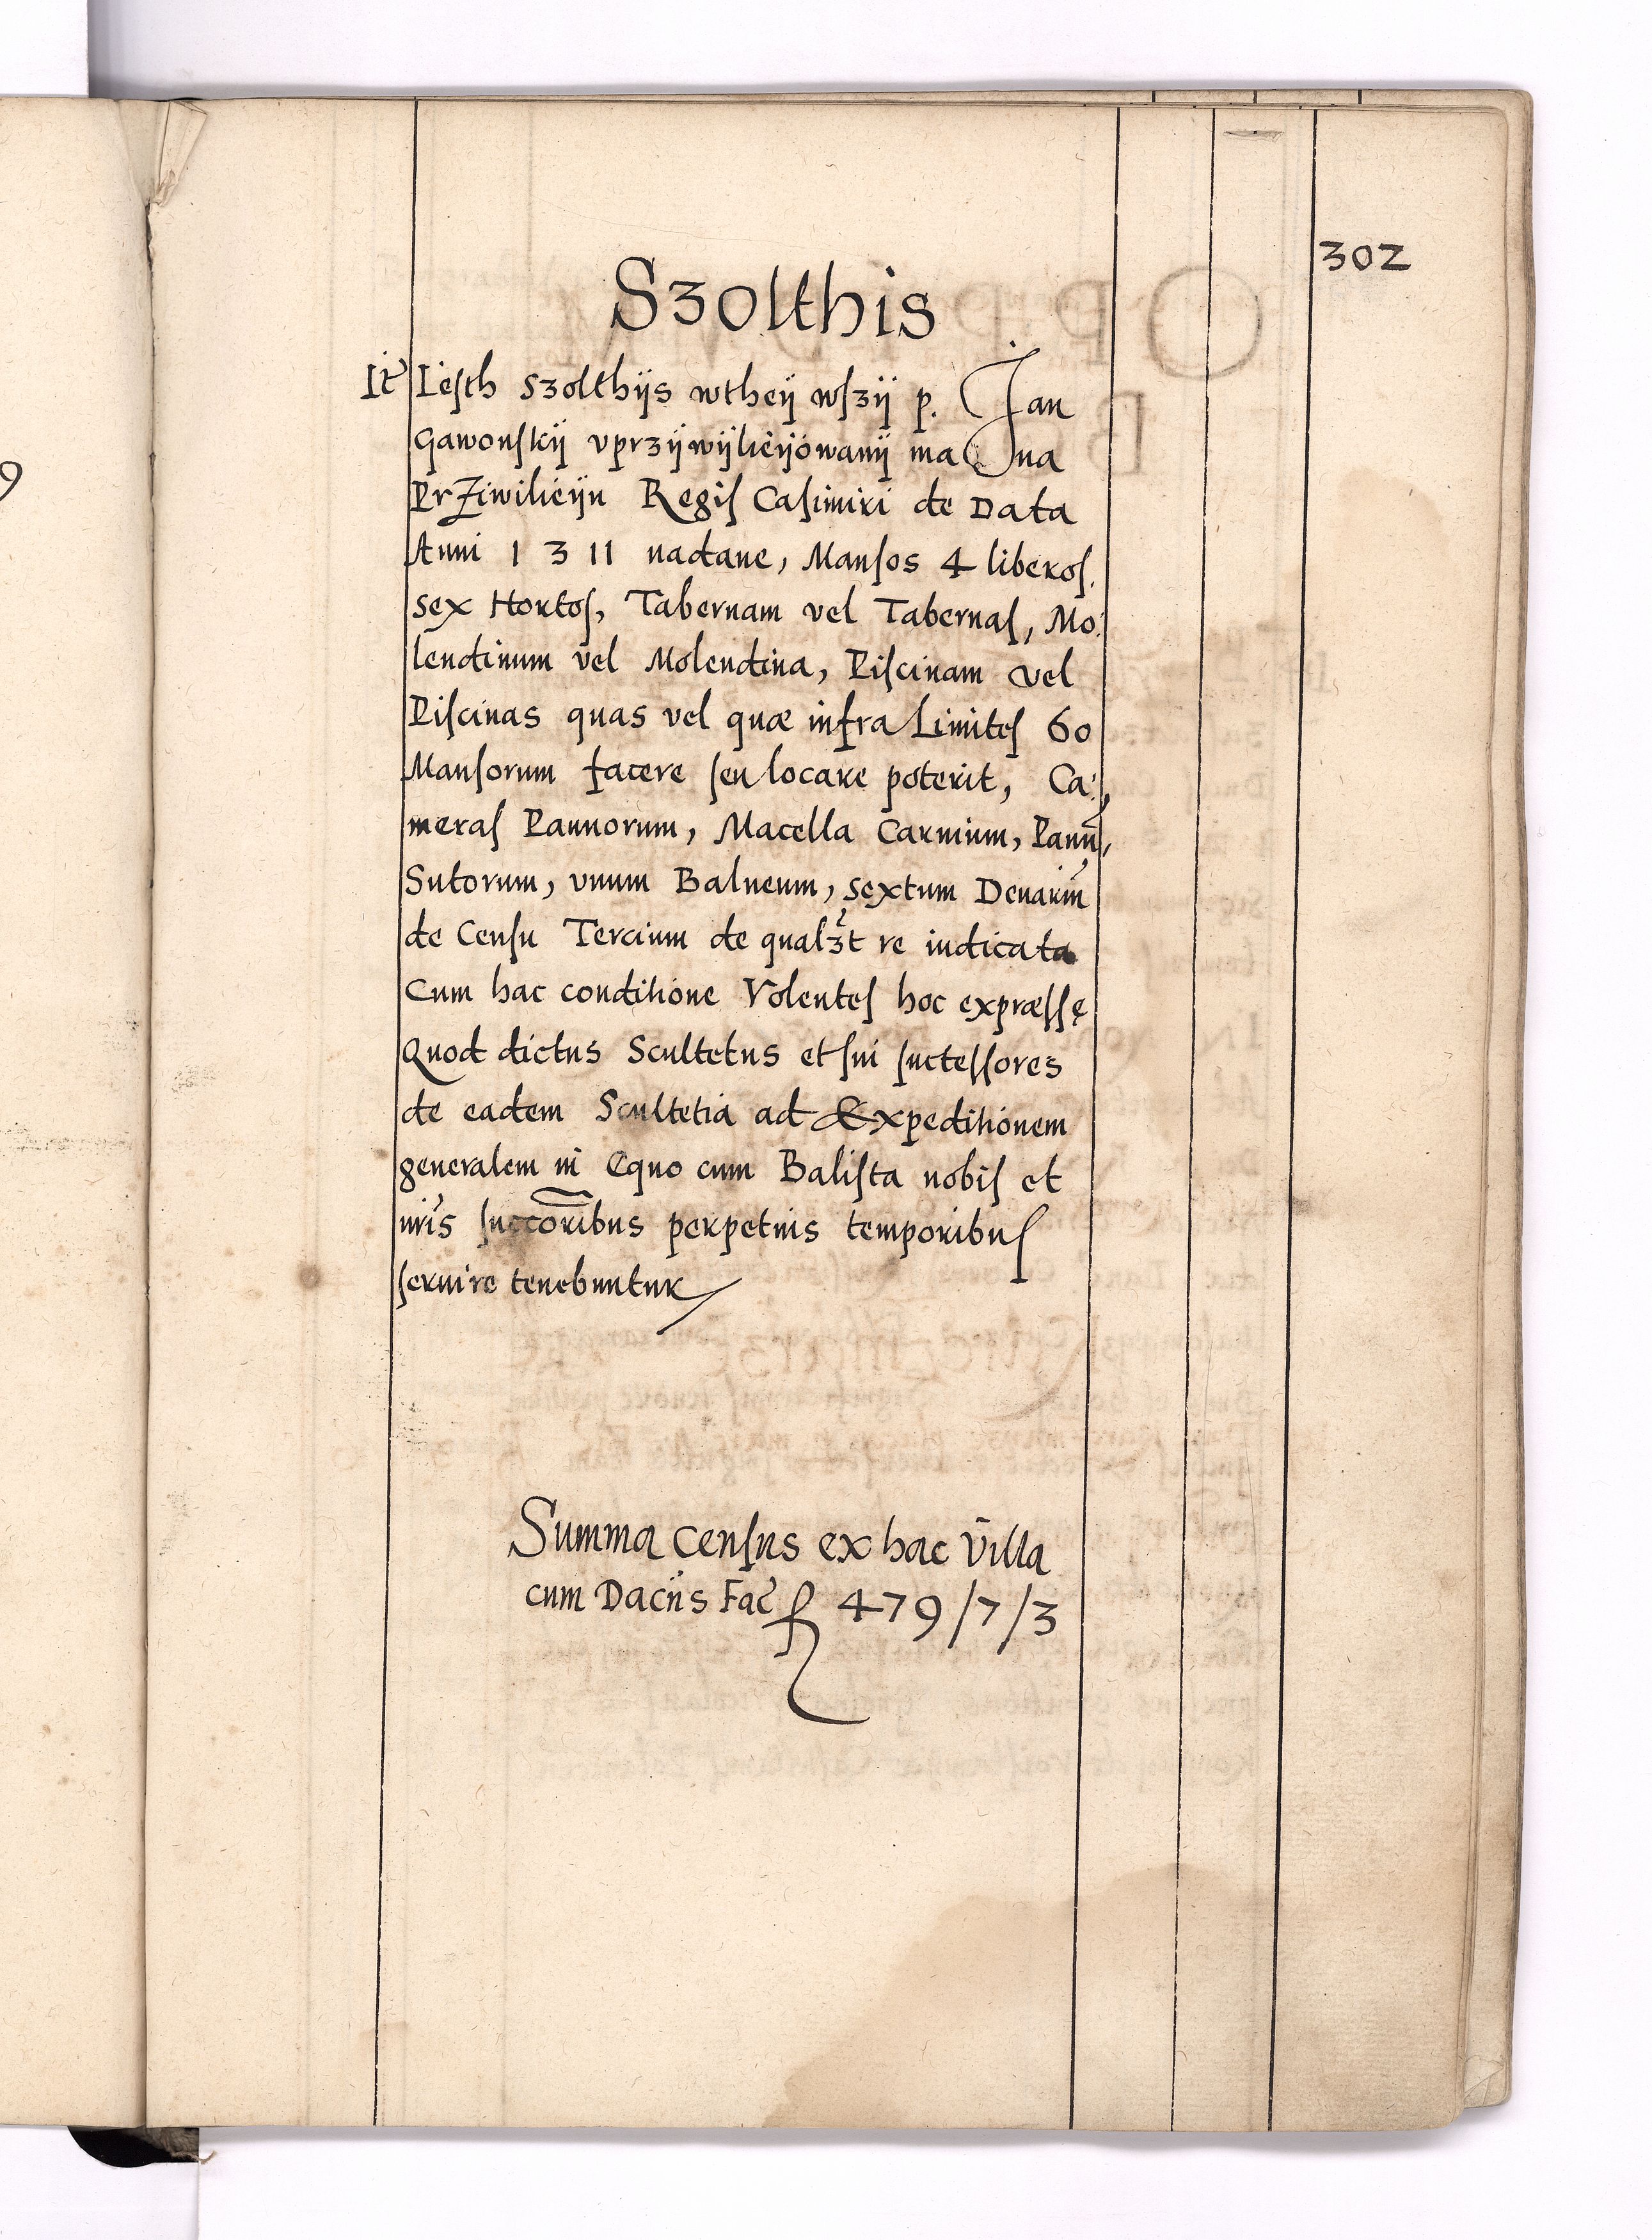 302
Szolthis
It Iesth szolthijs wtheij wszij p. Jan
Gawonskij vprzijwijlieijowanij ma na
Prziwilieiju Regis Casimiri de Data
Anni 1311 nadane, Mansos 4 liberos.
sex Hortos, Tabernam vel Tabernas, Mo:
lendinum vel Molendina, Piscinam vel
Piscinas quas vel quæ infra Limites 60
Mansorum facere seu locare poterit, Ca:
meras Pannorum, Macella Carnium, Panū,
Sutorum, vnum Balneum, sextum Denariū
de Censu Tercium de qualzt re iudicata
Cum hac conditione Volentes hoc expræssę
Quod dictus Scultetus et sui suctessores
de eadem Scultetia ad Expeditionem
generalem in Equo cum Balista nobis et
nris succoribus perpetuis temporibus
seruire tenebuntur
Summa Census ex hac Villa
cum Dacijs Fac f 479/7/3
9